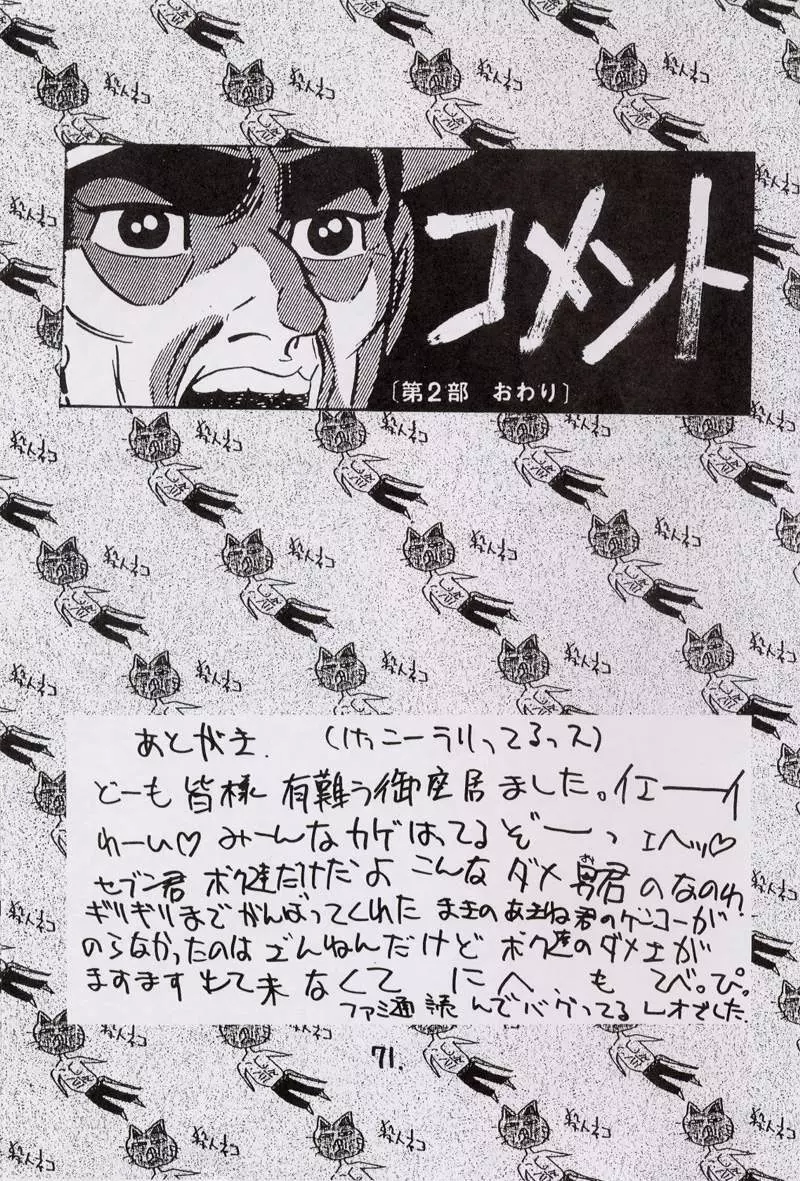 コメント
〔第2部 おわり〕
殺人ネコ
あとがき. (けっこーラリってるっス)
どーも皆様 有難う御座居ました。イエーイ
わーい♡ みーんなカゲはってるぞーっ エヘッ♡
セブン君 ボク達だけだよ こんな ダメ 男君 のなのわ
ギリギリまでがんばってくれた まきのあきね君のゲンコーが
のらなかったのは ざんねんだけど ボク達のダメエが
ますます 出て来 なくて に も
ファミ通 読んでバグってる レオでした.
71.